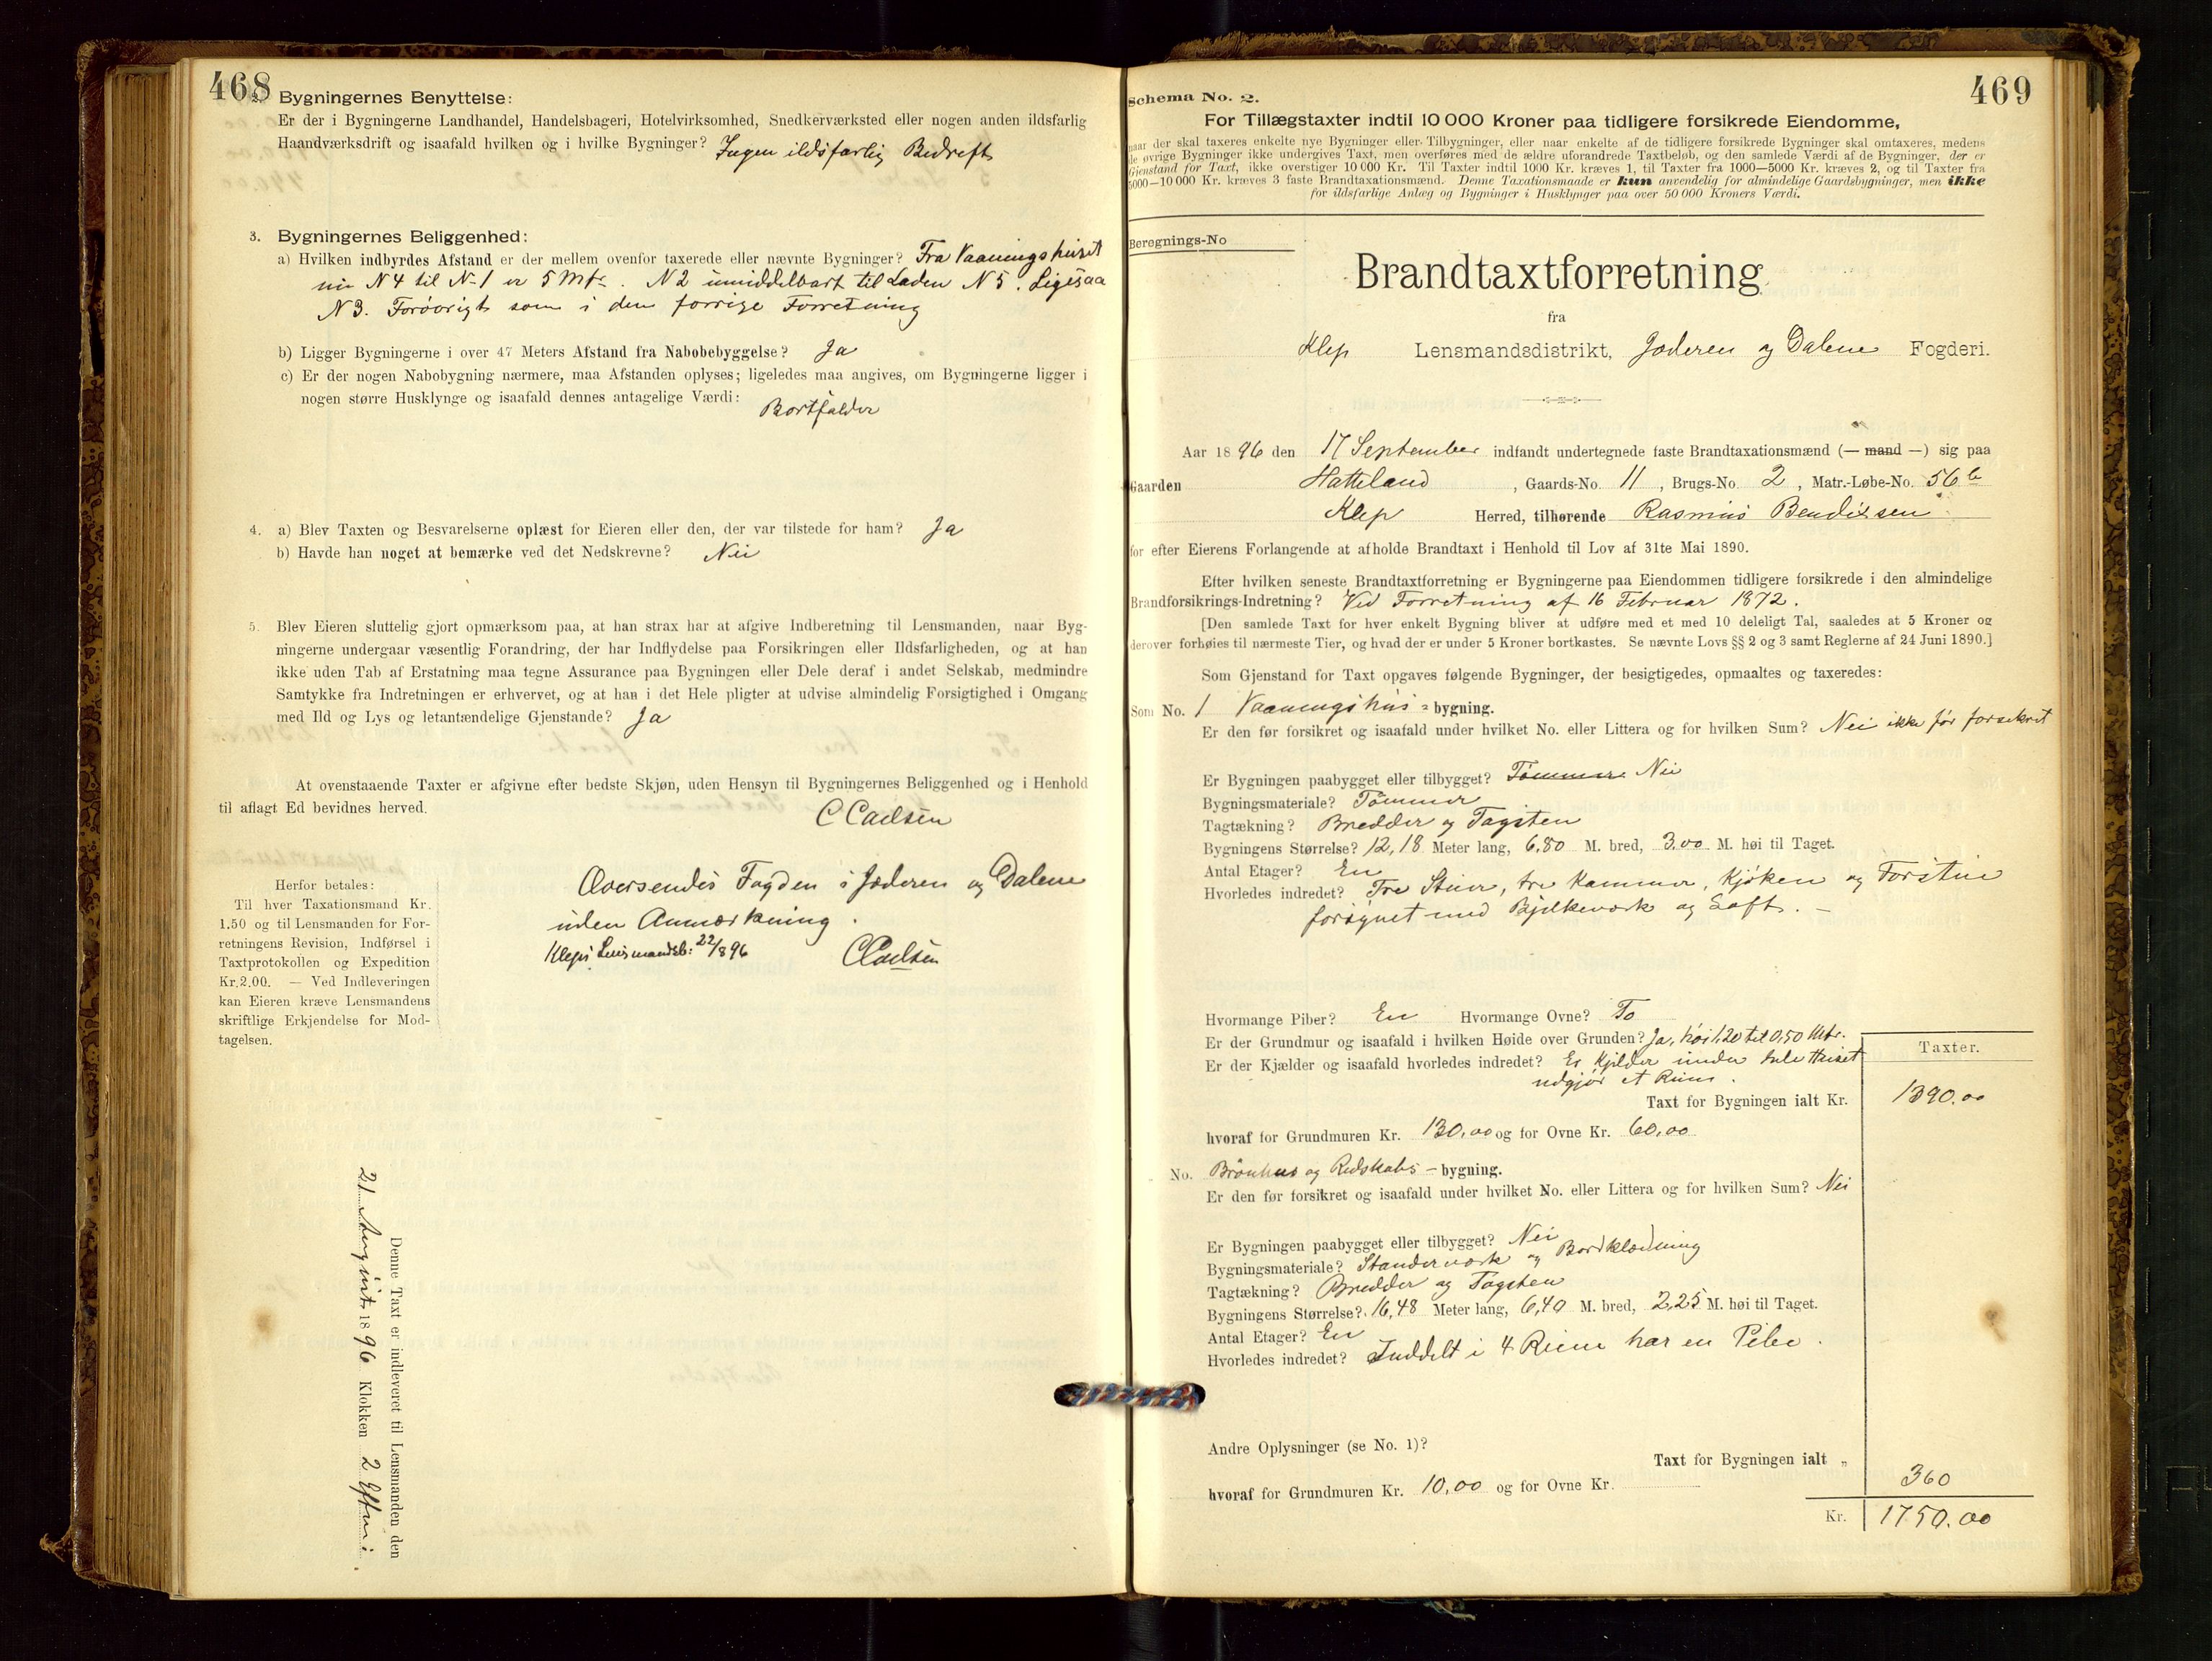 468
2. Bygningernes Benyttelse:
Er der i Bygningerne Landhandel, Handelsbageri, Hotelvirksomhed, Snedkerværksted eller nogen anden ildsfarlig
Haandværksdrift og isaafald hvilken og i hvilke Bygninger? Ingen ildsfarlig Bedrift
3. Bygningernes Beliggenhed:
a) Hvilken indbyrdes Afstand er der mellem ovenfor taxerede eller nævnte Bygninger? Fra Vaaningshuset
nu N 4 til N 1 er 5 Mtr. N 2 umiddelbart til Laden N 5. Ligesaa
N 3. Forøvrigt som i den forrige Forretning
b) Ligger Bygningerne i over 47 Meters Afstand fra Nabobebyggelse? Ja
c) Er der nogen Nabobygning nærmere, maa Afstanden oplyses; ligeledes maa angives, om Bygningerne ligger i
nogen større Husklynge og isaafald dennes antagelige Værdi: Bortfalder
4. a) Blev Taxten og Besvarelserne oplæst for Eieren eller den, der var tilstede for ham? Ja
b) Havde han noget at bemærke ved det Nedskrevne? Nei
5. Blev Eieren sluttelig gjort opmærksom paa, at han strax har at afgive Indberetning til Lensmanden, naar Byg-
ningerne undergaar væsentlig Forandring, der har Indflydelse paa Forsikringen eller Ildsfarligheden, og at han
ikke uden Tab af Erstatning maa tegne Assurance paa Bygningen eller Dele deraf i andet Selskab, medmindre
Samtykke fra Indretningen er erhvervet, og at han i det Hele pligter at udvise almindelig Forsigtighed i Omgang
med Ild og Lys og letantændelige Gjenstande? Ja
At ovenstaaende Taxter er afgivne efter bedste Skjøn, uden Hensyn til Bygningernes Beliggenhed og i Henhold
til aflagt Ed bevidnes herved.
C Carlsen
Oversendes Fogden i Jæderen og Dalene
uden Anmærkning.
Kleps Lensmandsb: 22/8 96 C Carlsen
Herfor betales:
Til hver Taxationsmand Kr.
1.50 og til Lensmanden for For-
retningens Revision, Indførsel i
Taxtprotokollen og Expedition
Kr. 2.00. — Ved Indleveringen
kan Eieren kræve Lensmandens
skriftlige Erkjendelse for Mod-
tagelsen.
Denne Taxt er indleveret til Lensmanden den
21 August 1896 Klokken 2 Efter
469
Schema No. 2.
For Tillægstaxter indtil 10 000 Kroner paa tidligere forsikrede Eiendomme,
naar der skal taxeres enkelte nye Bygninger eller Tilbygninger, eller naar enkelte af de tidligere forsikrede Bygninger skal omtaxeres, medens
de øvrige Bygninger ikke undergives Taxt, men overføres med de ældre uforandrede Taxtbeløb, og den samlede Værdi af de Bygninger, der er
Gjenstand for Taxt, ikke overstiger 10 000 Kr. Til Taxter indtil 1000 Kr. kræves 1, til Taxter fra 1000—5000 Kr. kræves 2, og til Taxter fra
5000—10 000 Kr. kræves 3 faste Brandtaxationsmænd. Denne Taxationsmaade er kun anvendelig for almindelige Gaardsbygninger, men ikke
for ildsfarlige Anlæg og Bygninger i Husklynger paa over 50 000 Kroners Værdi.
Beregnings-No
Brandtaxtforretning
fra
Klep Lensmandsdistrikt, Jæderen og Dalene Fogderi.
Aar 1896 den 17 September indfandt undertegnede faste Brandtaxationsmænd (— mand —) sig paa
Gaarden Hatteland, Gaards-No. 11, Brugs-No. 2, Matr.-Løbe-No. 56 b
Klep Herred, tilhørende Rasmus Bendiksen
for efter Eierens Forlangende at afholde Brandtaxt i Henhold til Lov af 31te Mai 1890.
Efter hvilken seneste Brandtaxtforretning er Bygningerne paa Eiendommen tidligere forsikrede i den almindelige
Brandforsikrings-Indretning? Ved Forretning af 16 Februar 1872.
[Den samlede Taxt for hver enkelt Bygning bliver at udføre med et med 10 deleligt Tal, saaledes at 5 Kroner og
derover forhøies til nærmeste Tier, og hvad der er under 5 Kroner bortkastes. Se nævnte Lovs §§ 2 og 3 samt Reglerne af 24 Juni 1890.]
Som Gjenstand for Taxt opgaves følgende Bygninger, der besigtigedes, opmaaltes og taxeredes:
Som No. 1 Vaaningshus-bygning.
Er den før forsikret og isaafald under hvilket No. eller Littera og for hvilken Sum? Nei ikke før forsikret
Er Bygningen paabygget eller tilbygget? Tømmer Nei
Bygningsmateriale? Tømmer
Tagtækning? Bredder og Tagsten
Bygningens Størrelse? 12,18 Meter lang, 6,80 M. bred, 3.00 M. høi til Taget.
Antal Etager? En
Hvorledes indredet? Tre Stuer, tre Kammer, Kjøken og Forstue
forsynet med Bjelkeværk og Loft. –
Hvormange Piber? En Hvormange Ovne? To
Er der Grundmur og isaafald i hvilken Høide over Grunden? Ja, høi 1,20 til 0,50 Mtr.
Er der Kjælder og isaafald hvorledes indredet? Er Kjelder under hele Huset
udgjør et Rum.
Taxter.
Taxt for Bygningen ialt Kr. 1390.00
hvoraf for Grundmuren Kr. 130,00 og for Ovne Kr. 60,00
No. Brønhus og Redskabs-bygning.
Er den før forsikret og isaafald under hvilket No. eller Littera og for hvilken Sum? Nei
Er Bygningen paabygget eller tilbygget? Nei
Bygningsmateriale? Standerværk og Bordklædning
Tagtækning? Bredder og Tagsten
Bygningens Størrelse? 16,48 Meter lang, 6,40 M. bred, 2,25 M. høi til Taget.
Antal Etager? En
Hvorledes indredet? Inddelt i 4 Rum har en Pibe.
Andre Oplysninger (se No. 1)?
Taxt for Bygningen ialt „ 360
hvoraf for Grundmuren Kr. 10,00 og for Ovne Kr.
Kr. 1750.00